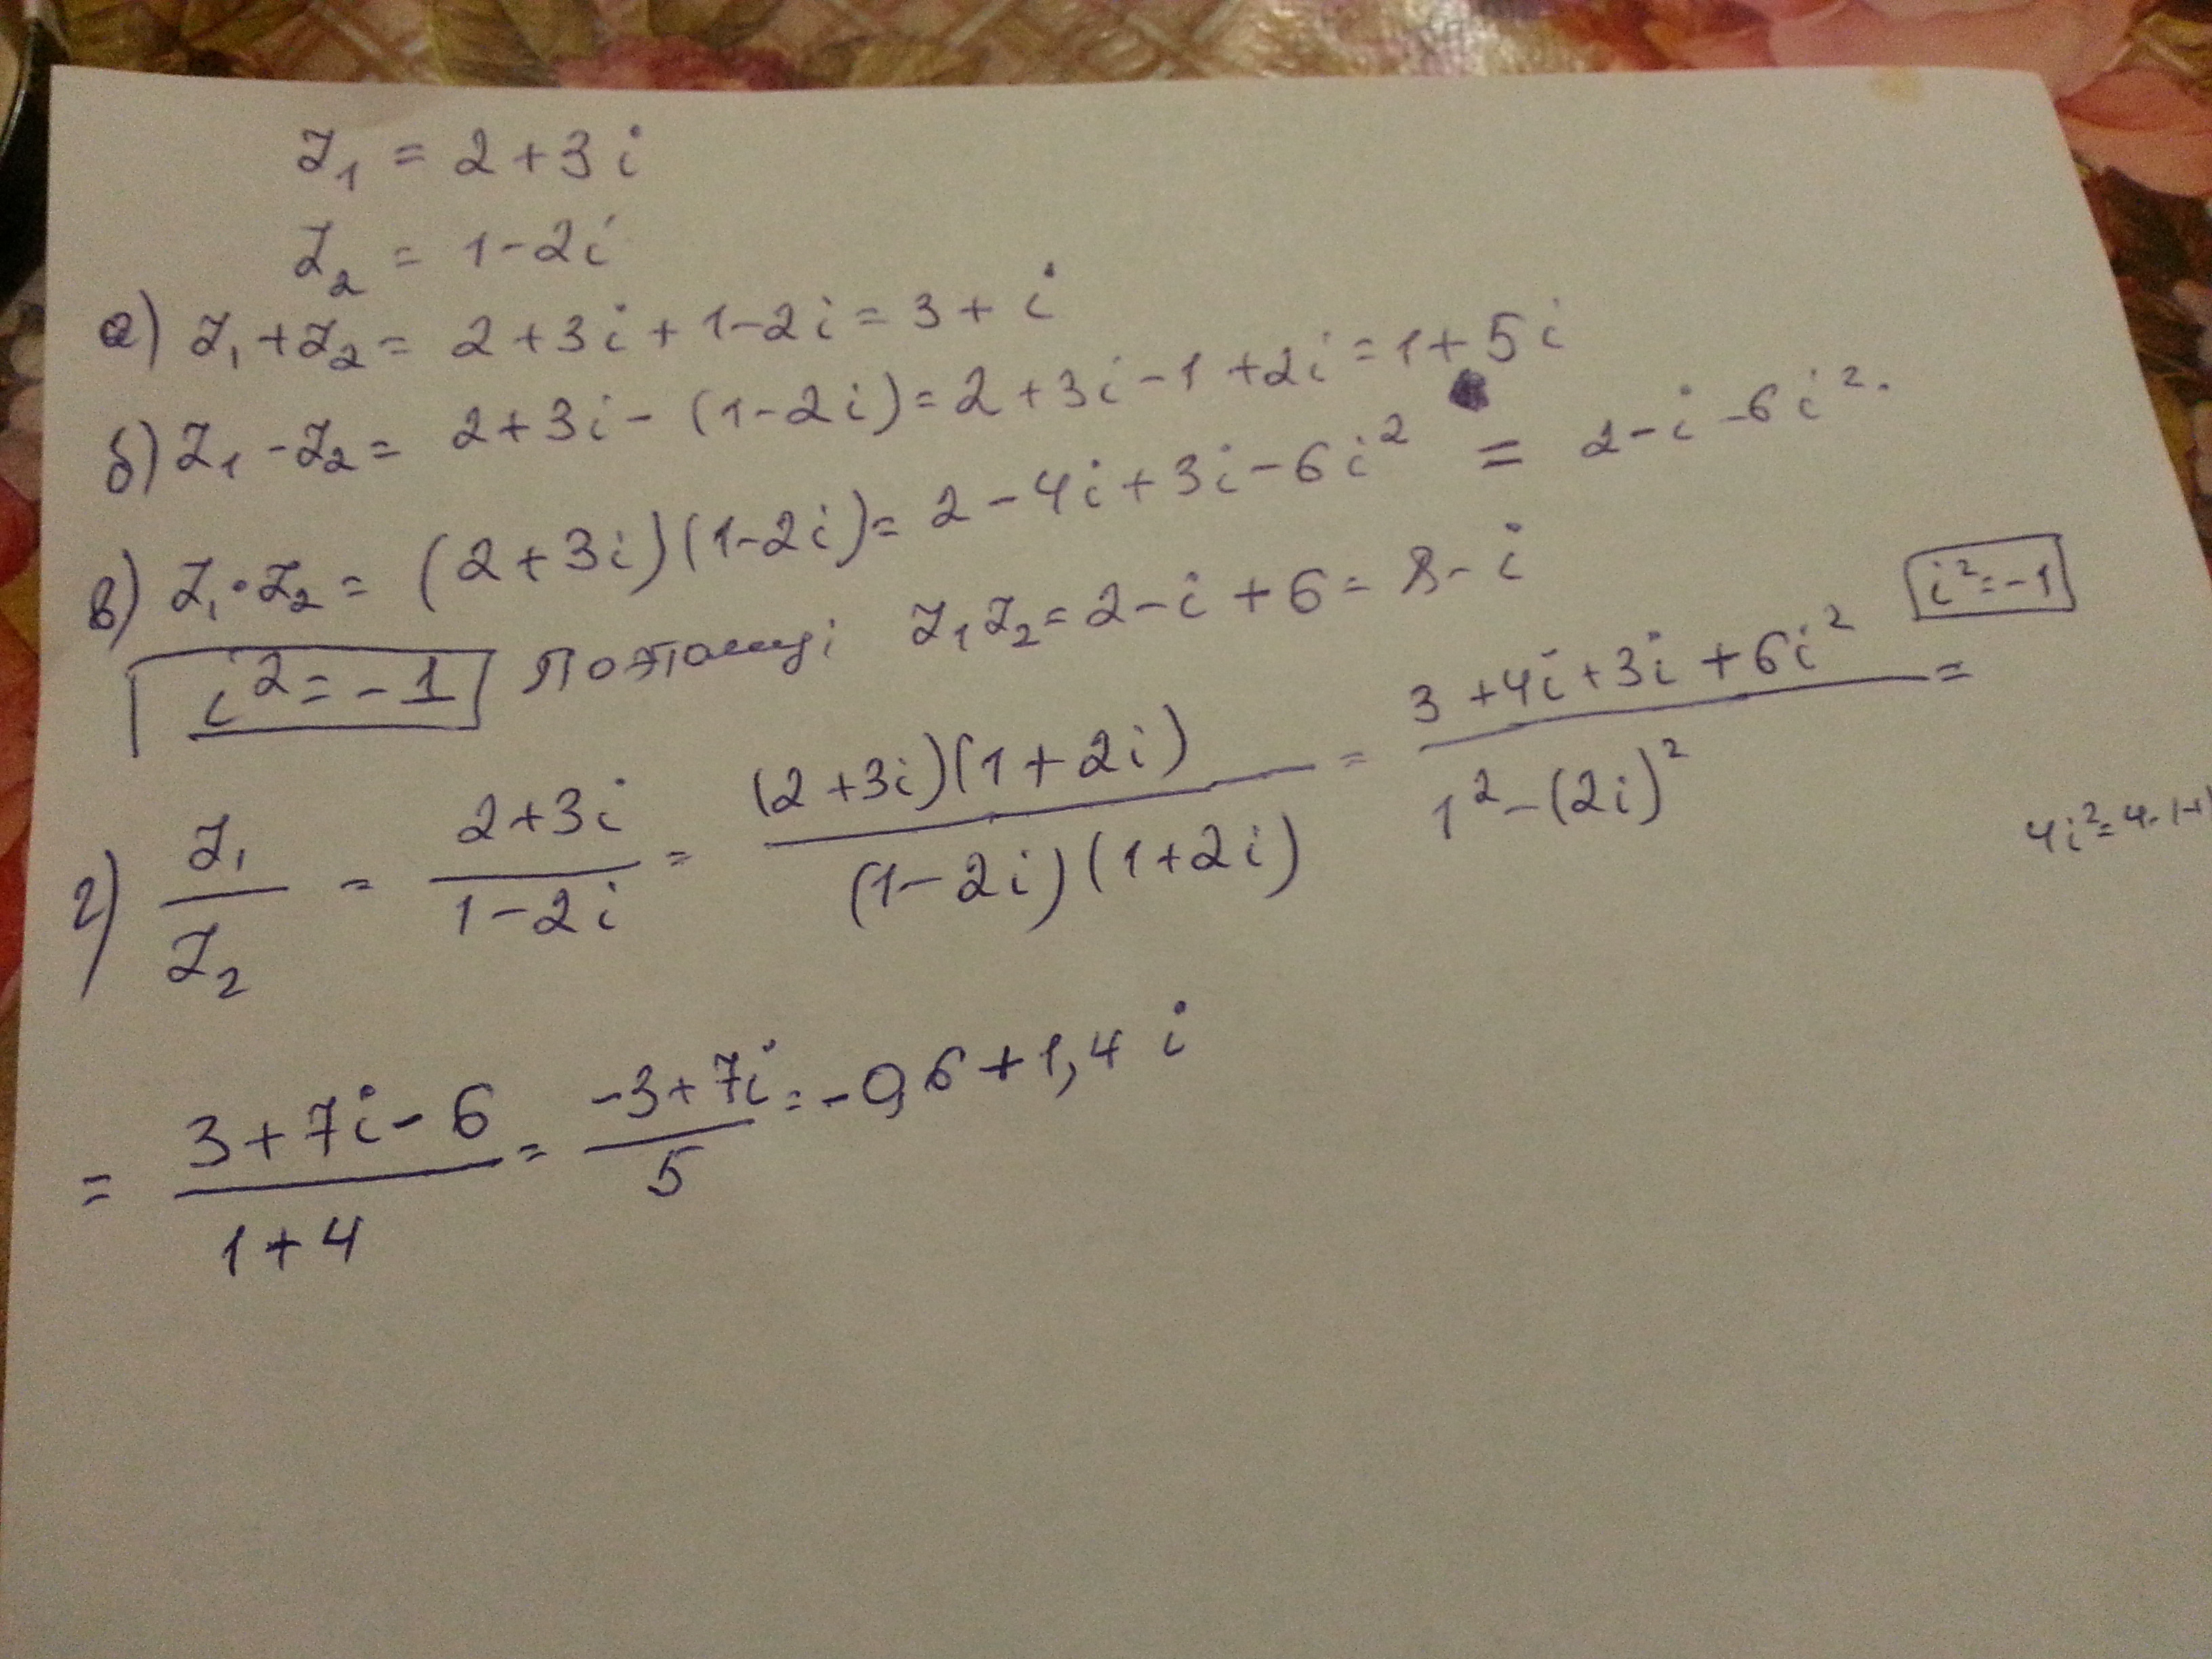 z₁ = 2 + 3i
z₂ = 1 - 2i
а) z₁ + z₂ = 2 + 3i + 1 - 2i = 3 + i
б) z₁ - z₂ = 2 + 3i - (1 - 2i) = 2 + 3i - 1 + 2i = 1 + 5i
в) z₁ · z₂ = (2 + 3i)(1 - 2i) = 2 - 4i + 3i - 6i² = 2 - i - 6i².
i² = -1 Поэтому: z₁z₂ = 2 - i + 6 = 8 - i
i² = -1
г) z₁/z₂ = (2 + 3i)/(1 - 2i) = ((2 + 3i)(1 + 2i))/((1 - 2i)(1 + 2i)) = (3 + 4i + 3i + 6i²)/(1² - (2i)²) =
4i² = 4·(-1)
= (3 + 7i - 6)/(1 + 4) = (-3 + 7i)/5 = -0,6 + 1,4i